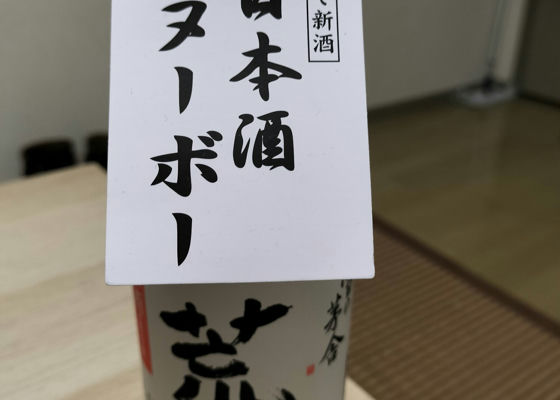 新酒
日本酒
ヌーボー
荒